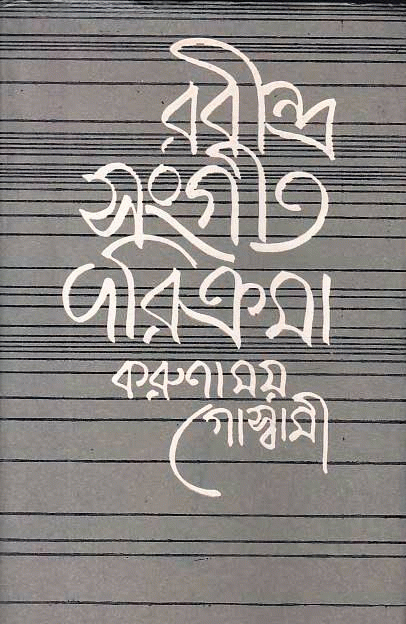 রবীন্দ্র
সংগীত
পরিক্রমা
করুণাময়
গোস্বামী